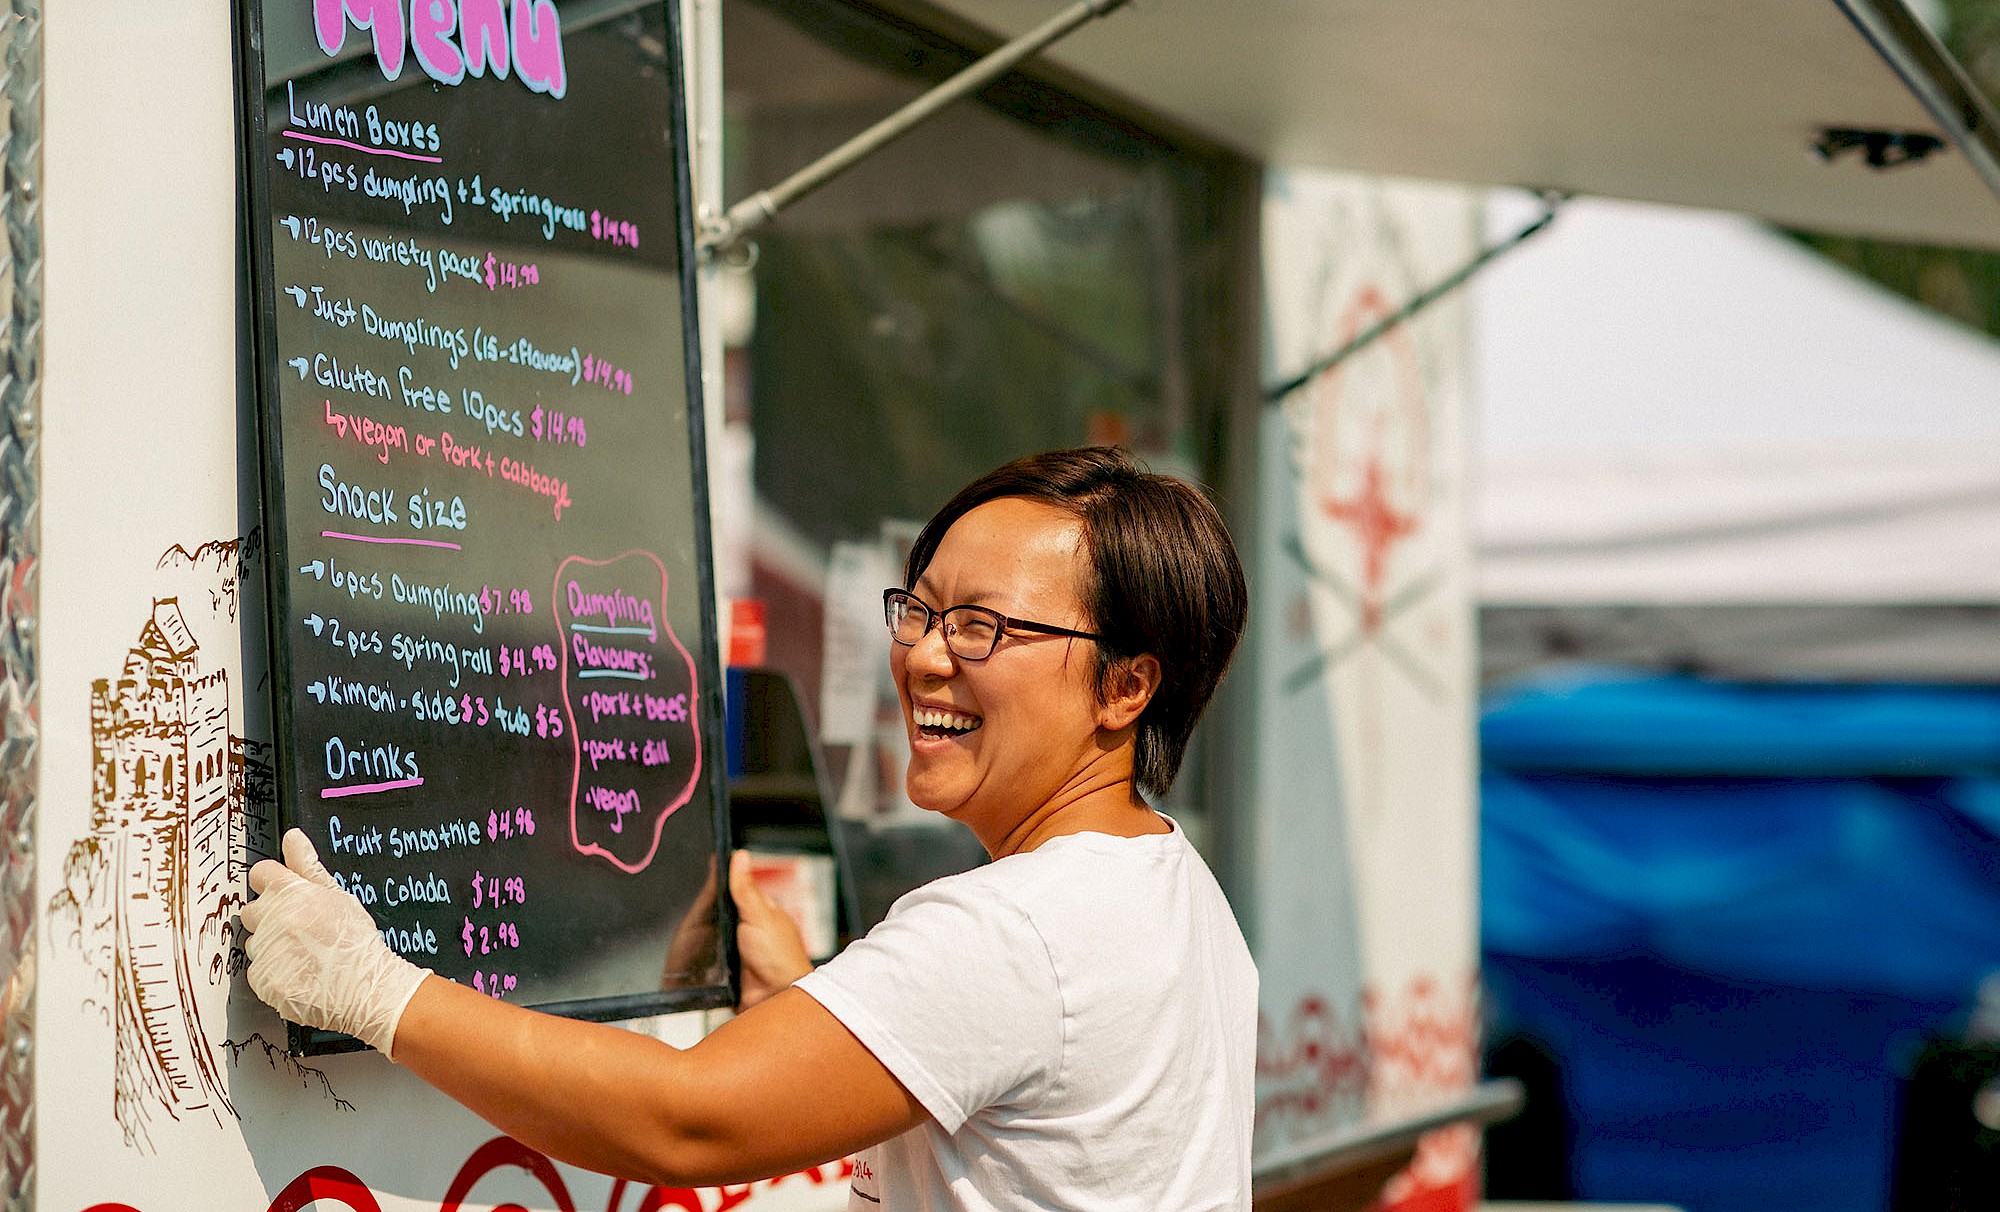 Menu
Lunch Boxes
→12 pcs dumpling + 1 springroll $14.98
→12 pcs variety pack $14.98
→Just Dumplings (15-1flavour) $14.98
→Gluten free 10pcs $14.98
↳vegan or Pork + cabbage
Snack size
→6pcs Dumpling $7.98
→2pcs spring roll $4.98
→Kimchi-side $3 tub $5
Dumpling
flavours:
•pork + beef
•pork + dill
•vegan
Drinks
fruit smoothie $4.98
Piña Colada $4.98
nade $2.98
$2.00